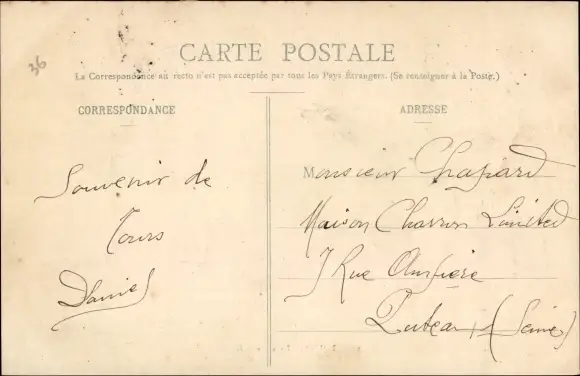 36
CARTE POSTALE
La Correspondance au recto n'est pas acceptée par tous les Pays Étrangers. (Se renseigner à la Poste.)
CORRESPONDANCE
Souvenir de
Tours
Daniel
ADRESSE
Monsieur Chapard
Maison Charron Limited
7 Rue Ampère
Puteaux (Seine)